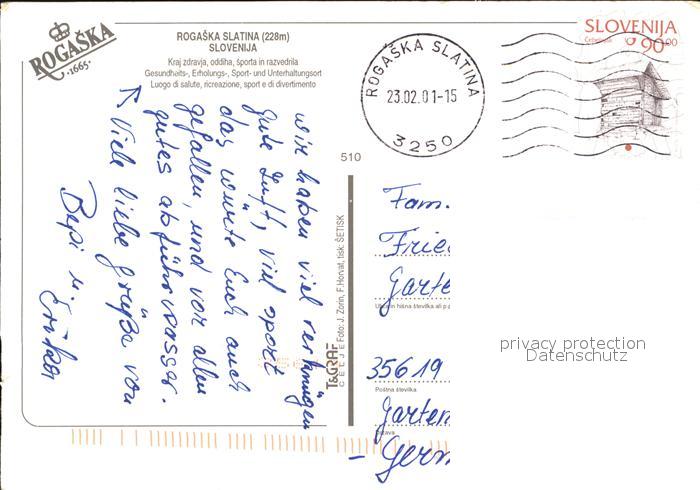 ROGAŠKA
·1665·
ROGAŠKA SLATINA (228m)
SLOVENIJA
Kraj zdravja, oddiha, športa in razvedrila
Gesundheits-, Erholungs-, Sport- und Unterhaltungsort
Luogo di salute, ricreazione, sport e di divertimento
ROGAŠKA SLATINA
23.02.01-15
3250
SLOVENIJA
90.00
510
wir haben viel vergnügen
gute Luft, viel sport
das würte Euch auch
gefallen, und vor allen
gutes abführwasser.
Viele liebe grüße von
Bepi u. Erika
T&GRAF
CELJE Foto: J. Zorin, F. Horvat, tisk: ŠETISK
Fam.
Frie
Garte
Ulica in hišna številka ali p.p
35619
Poštna številka
Garten
Država
Germ
privacy protection
Datenschutz